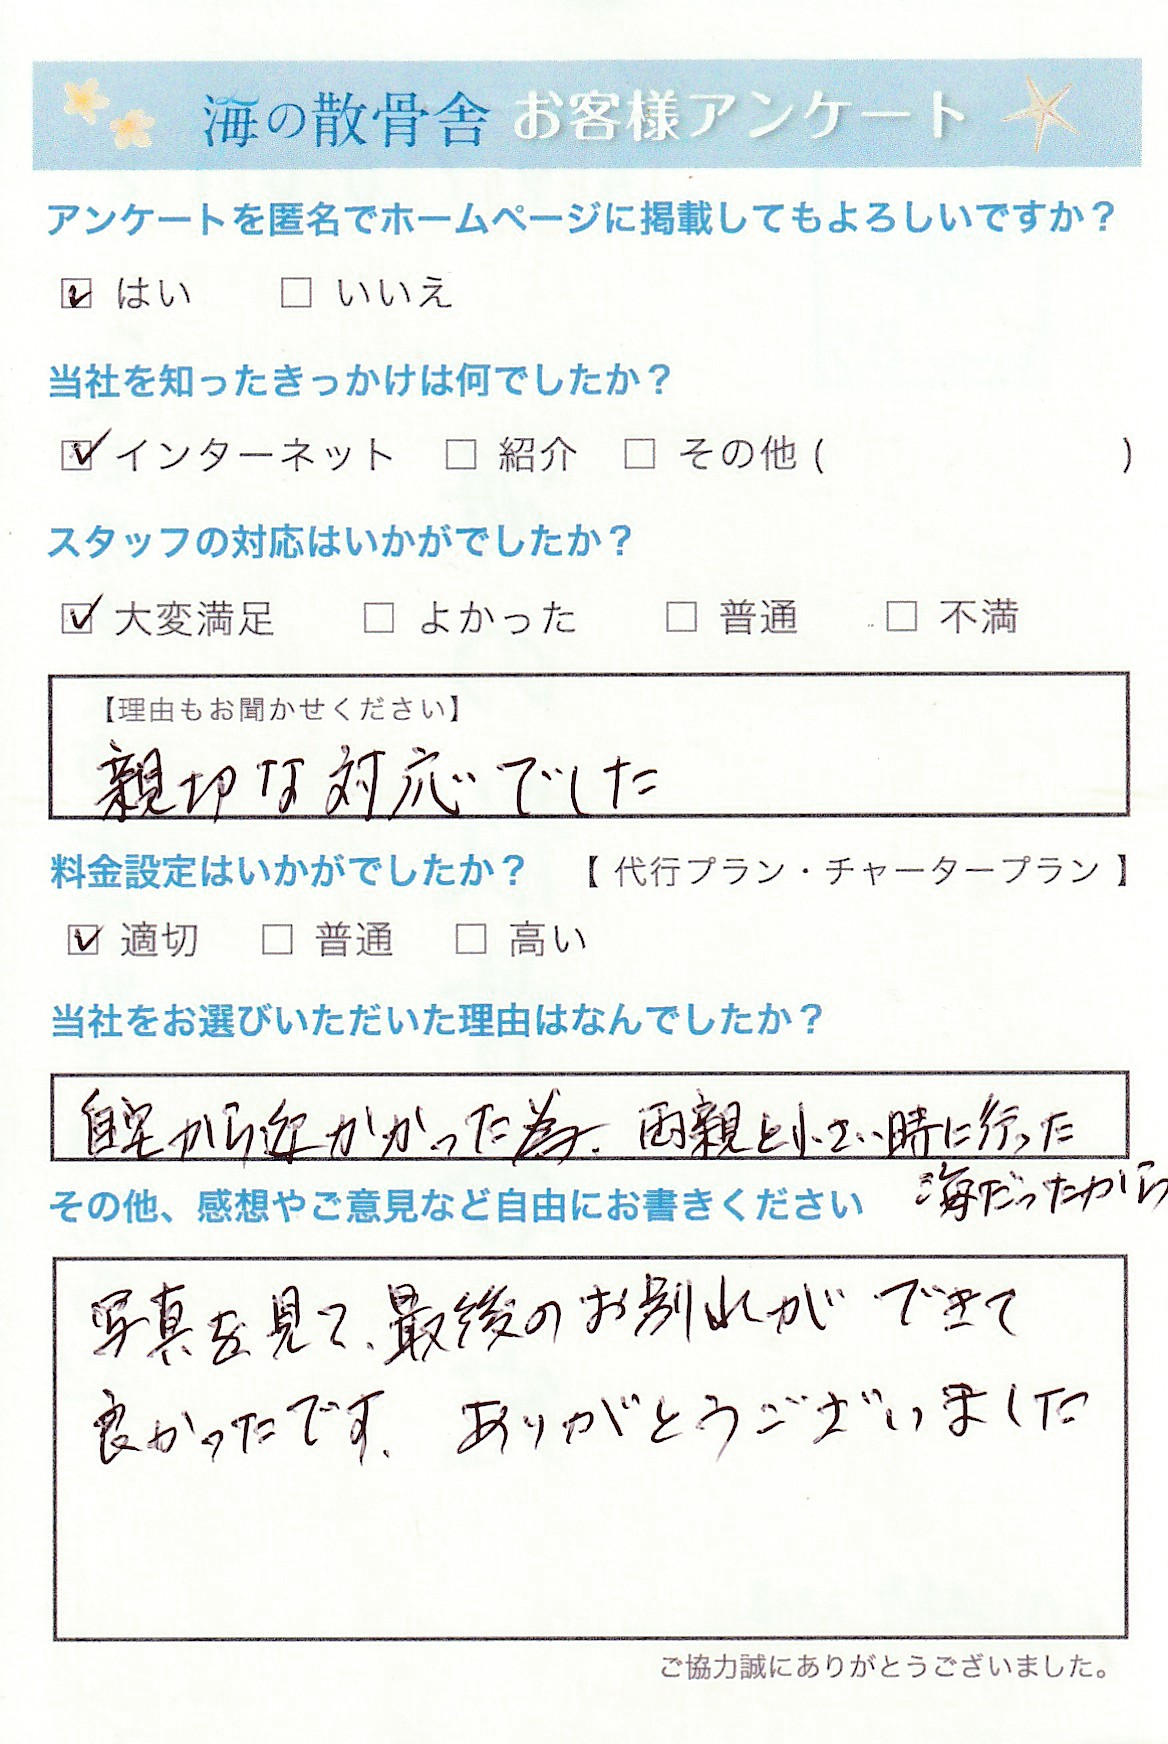 海の散骨舎 お客様アンケート
アンケートを匿名でホームページに掲載してもよろしいですか？
☑ はい □ いいえ
当社を知ったきっかけは何でしたか？
☑ インターネット □ 紹介 □ その他 ( )
スタッフの対応はいかがでしたか？
☑ 大変満足 □ よかった □ 普通 □ 不満
【理由もお聞かせください】
親切な対応でした
料金設定はいかがでしたか？ 【 代行プラン・チャータープラン 】
☑ 適切 □ 普通 □ 高い
当社をお選びいただいた理由はなんでしたか？
自宅から近かかった為、両親と小さい時に行った
海だったから
その他、感想やご意見など自由にお書きください
写真を見て、最後のお別れができて
良かったです。ありがとうございました
ご協力誠にありがとうございました。